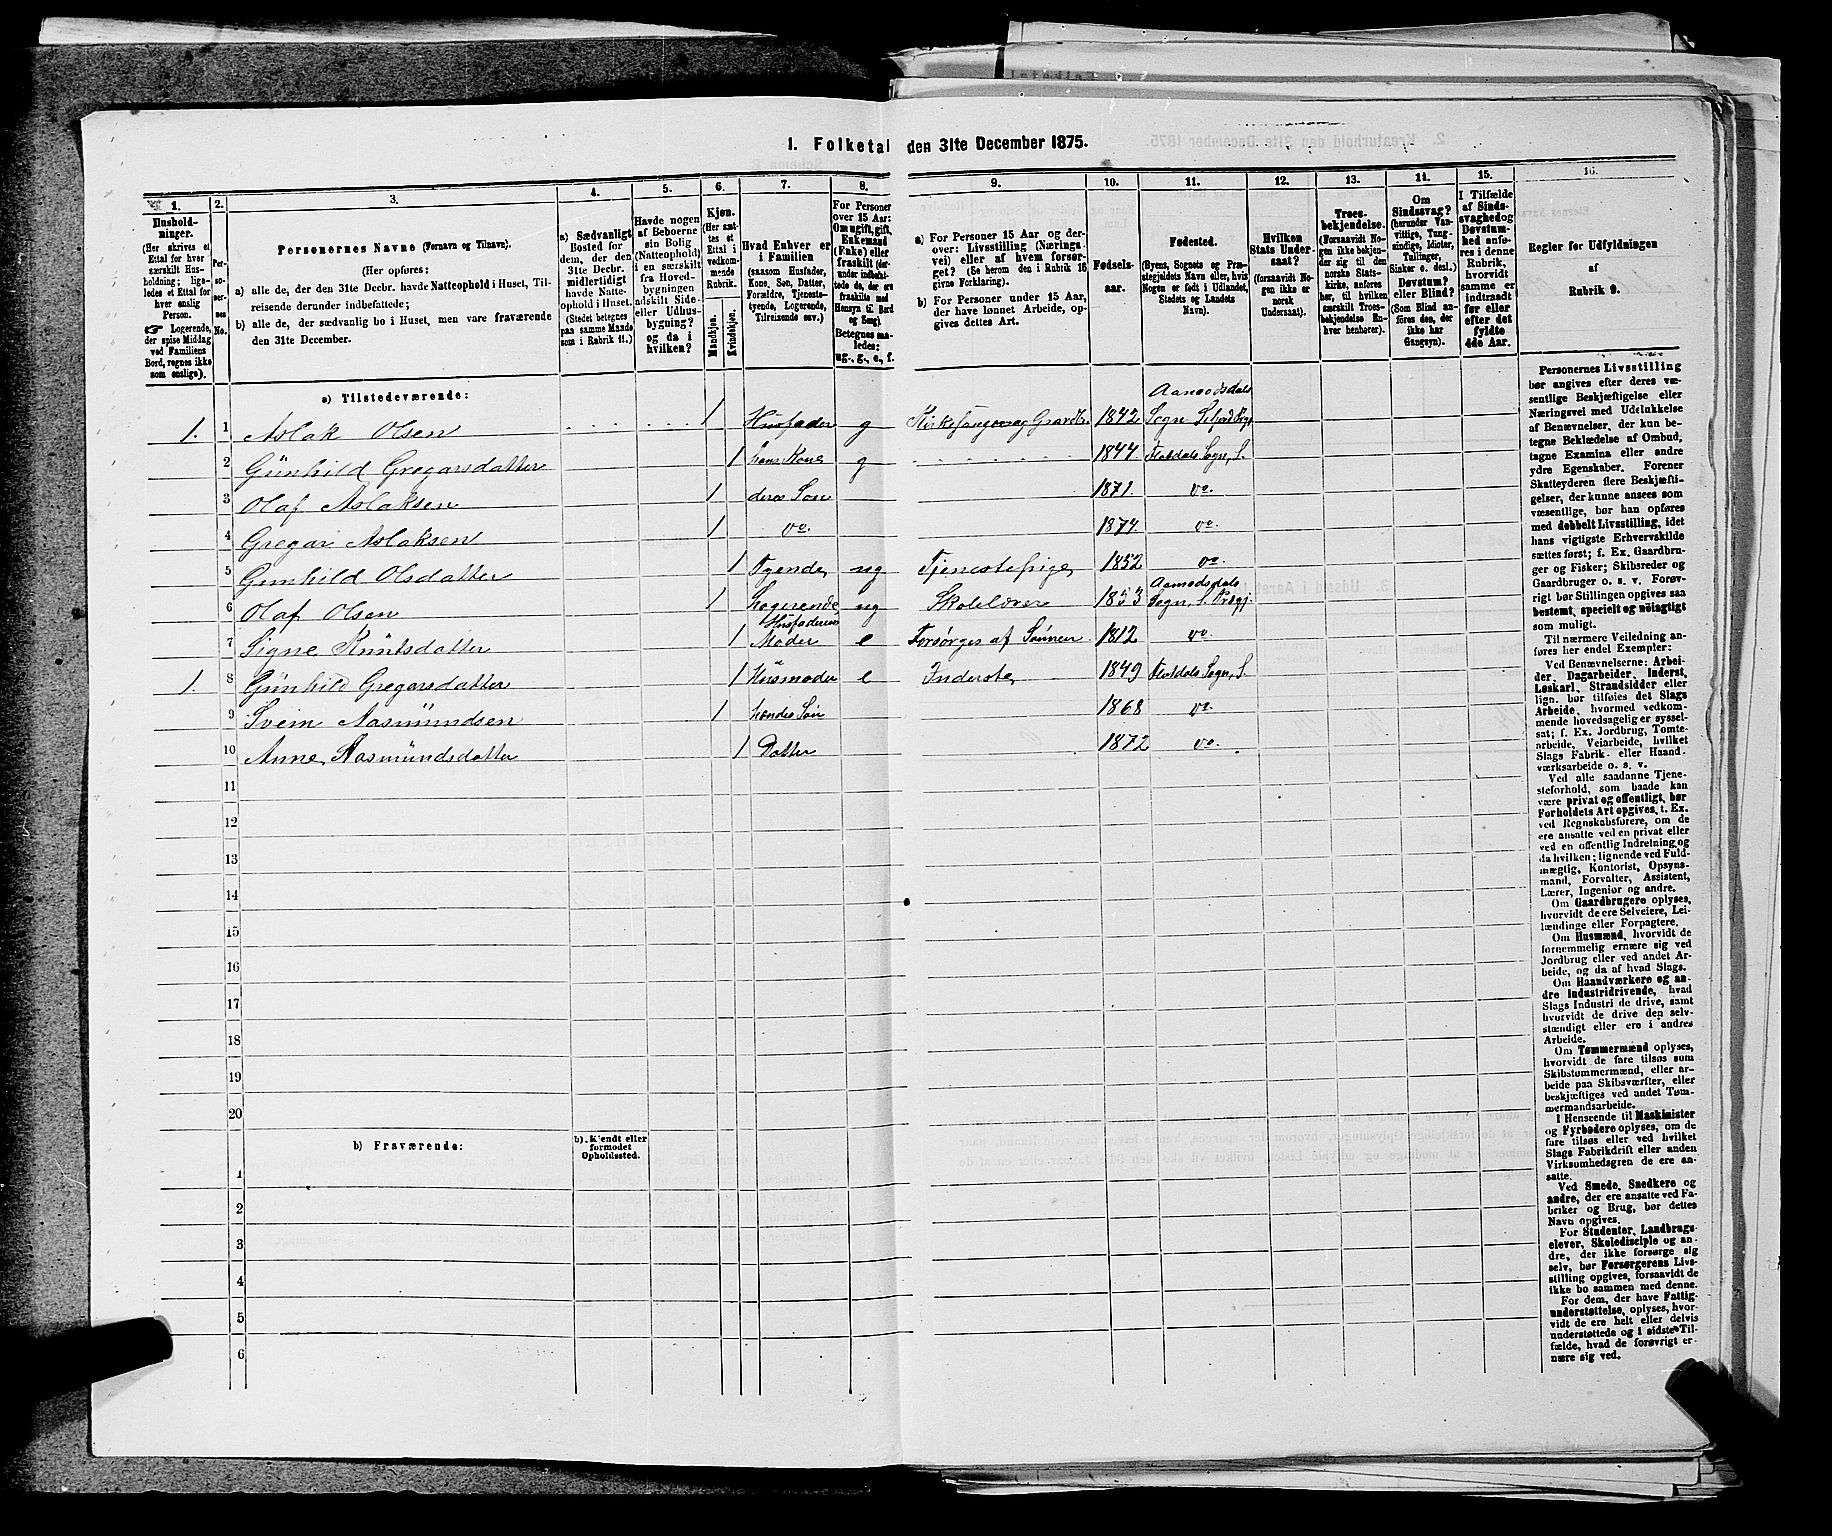 1. Folketal den 31te December 1875.
1.
2.
3.
4.
5.
6.
7.
8.
9.
10.
11.
12.
13.
14.
15.
16.
Hushold-
ninger.
(Her skrives et
Ettal for hver
særskilt Hus-
holdning; lige-
ledes et Ettal for
hver enslig
Person.
☞ Logerende,
der spise Middag
ved Familiens
Bord, regnes ikke
som enslige).
Per-
so-
ner-
nes
No.
Personernes Navne (Fornavn og Tilnavn).
(Her opføres:
a) alle de, der den 31te Decbr. havde Natteophold i Huset, Til-
reisende derunder indbefattede;
b) alle de, der sædvanlig bo i Huset, men vare fraværende
den 31te December.
a) Sædvanligt
Bosted for
dem, der den
31te Decbr.
midlertidigt
havde Natte-
ophold i Huset.
(Stedet betegnes
paa samme Maade
som i Rubrik 11.)
Havde nogen
af Beboerne
sin Bolig
(Natteophold)
i en særskilt
fra Hoved-
bygningen
adskilt Side-
eller Udhus-
bygning?
og da i
hvilken?
Kjøn.
(Her sæt-
tes et
Ettal i
vedkom-
mende
Rubrik.
Mandkjøn.
Kvindekjøn.
Hvad Enhver er
i Familien
(saasom Husfader,
Kone, Søn, Datter,
Forældre, Tjeneste-
tyende, Logerende,
Tilreisende osv.)
For Personer
over 15 Aar:
Om ugift, gift,
Enkemand
(Enke) eller
fraskilt (der-
under indbefat-
tede de, der
ere fraskilte
med Hensyn
til Bord
og Seng).
Betegnes saa-
ledes:
ug., g., e., f.
a) For Personer 15 Aar og der-
over: Livsstilling (Nærings-
vei) eller af hvem forsør-
get? (Se herom den i Rubrik 16
givne Forklaring).
b) For Personer under 15 Aar,
der have lønnet Arbeide, op-
gives dettes Art.
Fødsels-
aar.
Fødested.
(Byens, Sognets og Præ-
stegjeldets Navn eller, hvis
Nogen er født i Udlandet,
Stedets og Landets
Navn).
Hvilken
Stats Under-
saat?
(forsaavidt No-
gen ikke er
norsk
Undersaat).
Troes-
bekjendelse.
(Forsaavidt No-
gen ikke bekjen-
der sig til den
norske Stats-
kirke, anføres
her, til hvilken
særskilt Troes-
bekjendelse En-
hver henhører).
Om
Sindssvag?
(herunder Van-
vittige, Tung-
sindige, Idioter,
Tullinger,
Sinker o. desl.)
Døvstum?
eller Blind?
(Som Blind an-
føres den, der
ikke har
Gangsyn).
I Tilfælde
af Sinds-
svaghed og
Døvstum-
hed anfø-
res i denne
Rubrik,
hvorvidt
samme er
indtraadt
før eller
efter det
fyldte
4de Aar.
Regler for Udfyldningen
af
Rubrik 9.
a) Tilstedeværende:
1. 1 Aslak Olsen 1 Husfader g Kirkesanger og Gaardbr. 1842 Aamodsdals Sogn Seljord Præg.
2 Günhild Gregarsdatter 1 hans Kone g 1844 Flatdals Sogn, S.
3 Olaf Aslaksen 1 deres Søn 1871. do.
4 Gregar Aslaksen 1 do. 1874 do.
5 Gunhild Olsdatter 1 Tyende, ug Tjenestepige, 1852 do.
6 Olaf Olsen 1 Logerende ug Skolelærer 1853 Aamodsdals Sogn, S. Prægj.
7 Signe Knütsdatter 1 Husfaderens Moder e Forsørges af Sønnen 1812 do
1. 8 Günhild Gregarsdatter 1 Husmoder e Inderste, 1849 Flatdals Sogn, S.
9 Svein Aasmündsen 1 hendes Søn 1868 do
10 Anne Aasmündsdatter 1 Datter 1872 do.
11
12
13
14
15
16
17
18
19
20
b) Fraværende:
b). Kjendt eller
formodet
Opholdssted.
1
2
3
4
5
6
Personernes Livsstilling
bør angives efter deres væ-
sentlige Beskjæftigelse eller
Næringsvei med Udelukkelse
af Benævnelser, der kun be-
tegne Beklædelse af Ombud,
tagne Examina eller andre
ydre Egenskaber. Forener
Skatteyderen flere Beskjæfti-
gelser, der kunne ansees som
væsentlige, bør han opføres
med dobbelt Livsstilling, idet
hans vigtigste Erhvervskilde
sættes først; f. Ex. Gaardbru-
ger og Fisker; Skibsreder og
Gaardbruger o. s. v. Forøv-
rigt bør Stillingen opgives saa
bestemt, specielt og nøiagtigt
som muligt.
Til nærmere Veiledning an-
føres her endel Exempler:
Ved Benævnelserne: Arbei-
der, Dagarbeider, Inderst,
Løskarl, Strandsidder eller
lign. bør tilføies det Slags
Arbeide, hvormed vedkom-
mende hovedsagelig er syssel-
sat; f. Ex. Jordbrug, Tomte-
arbeide, Veiarbeide, hvilket
Slags Fabrik- eller Haand-
værksarbeide o. s. v.
Ved alle saadanne Tjene-
steforhold, som baade kan
være privat og offentligt, bør
Forholdets Art opgives, t. Ex.
ved Regnskabsførere, om de
ere ansatte ved en privat eller
ved en offentlig Indretning og
da hvilken; lignende ved Fuld-
mægtig, Kontorist, Opsyns-
mand, Forvalter, Assistent,
Lærer, Ingeniør og andre.
Om Gaardbrugere oplyses,
hvorvidt de ere Selveiere, Lei-
lændinge eller Forpagtere.
Om Husmænd, hvorvidt de
fornemmelig ernære sig ved
Jordbrug eller ved andet Ar-
beide, og da af hvad Slags.
Om Haandværkere og an-
dre Industridrivende, hvad
Slags Industri de drive, samt
hvorvidt de drive den selv-
stændigt eller ere i andres
Arbeide.
Om Tømmermænd oplyses,
hvorvidt de fare tilsøs som
Skibstømmermænd, eller ar-
beide paa Skibsværfter, eller
beskjæftiges ved andet Tøm-
mermandsarbeide.
I Henseende til Maskinister
og Fyrbødere oplyses, om de
fare tilsøs eller ved hvilket
Slags Fabrikdrift eller anden
Virksomhedsgren de ere an-
satte.
Ved Smede, Snedkere og
andre, der ere ansatte ved Fa-
briker og Brug, bør dettes
Navn opgives.
For Studenter, Landbrugs-
elever, Skoledisciple og an-
dre, der ikke forsørge sig
selv, bør Forsørgerens Livs-
stilling opgives, forsaavidt de
ikke bo sammen med denne.
For dem, der have Fattig-
understøttelse, oplyses, hvor-
vidt de ere helt eller delvis
understøttede og i sidste Til-
fælde, hvad de forøvrigt er-
nære sig ved.